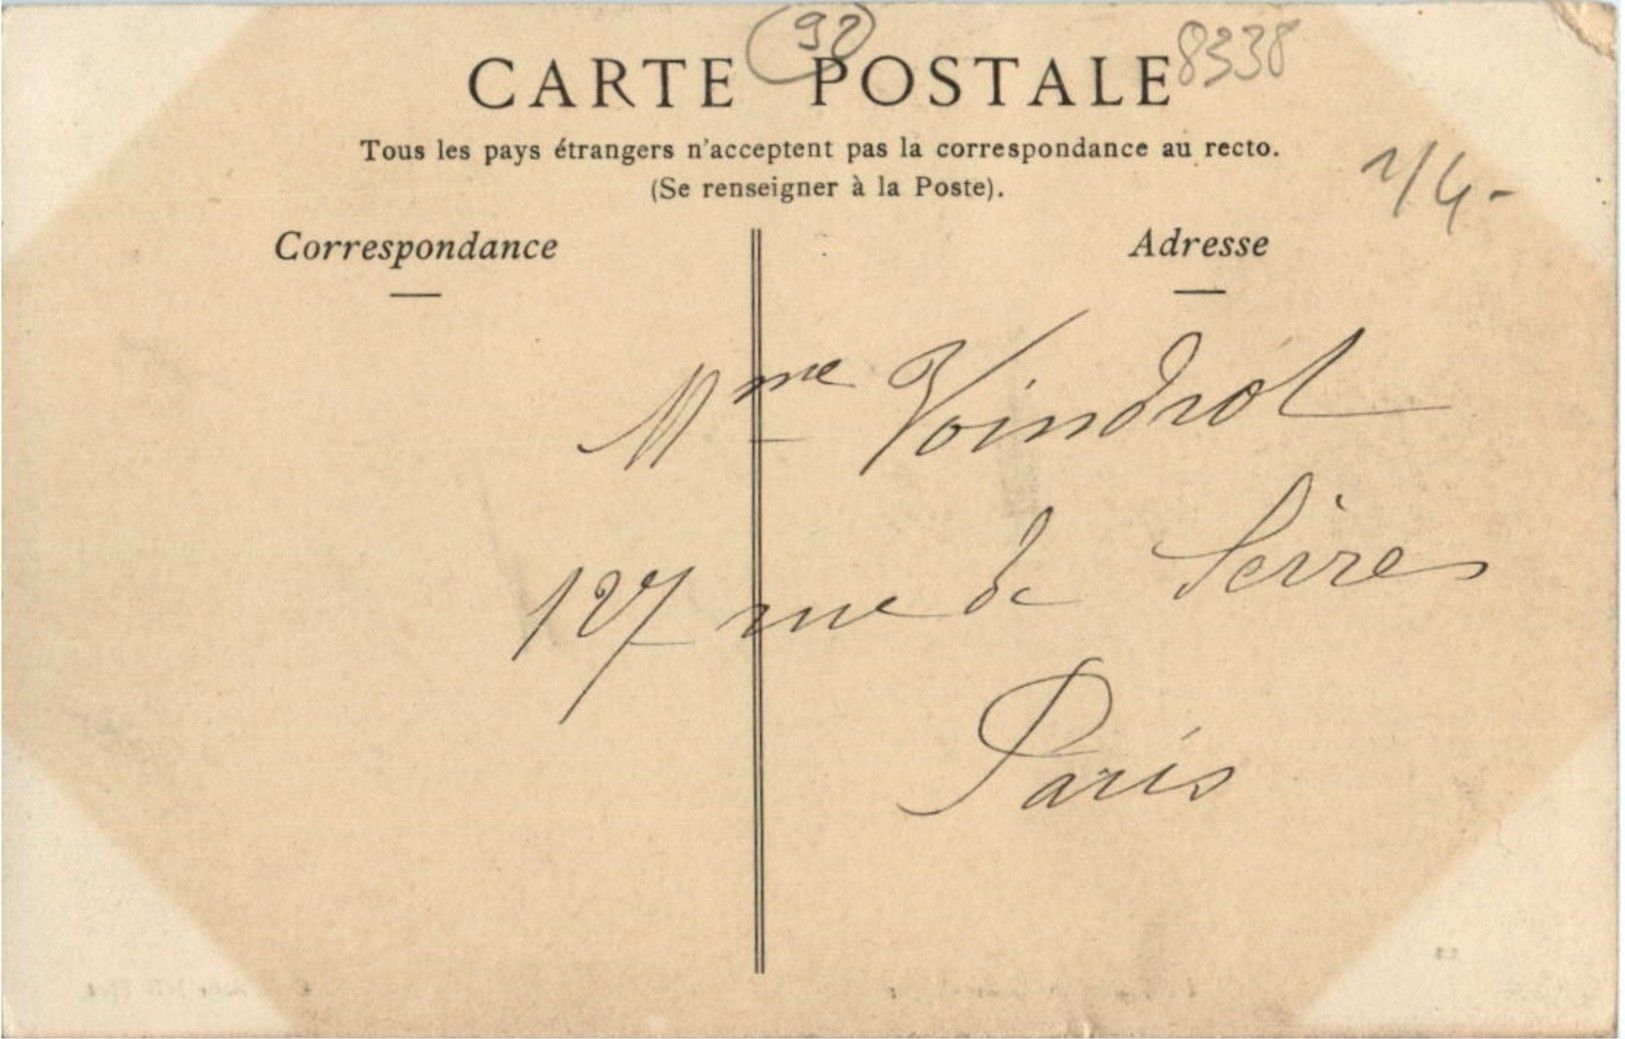 92
8338
CARTE POSTALE
Tous les pays étrangers n'acceptent pas la correspondance au recto.
(Se renseigner à la Poste).
Correspondance
Adresse
Mme Voindrot
127 rue de Sèvres
Paris